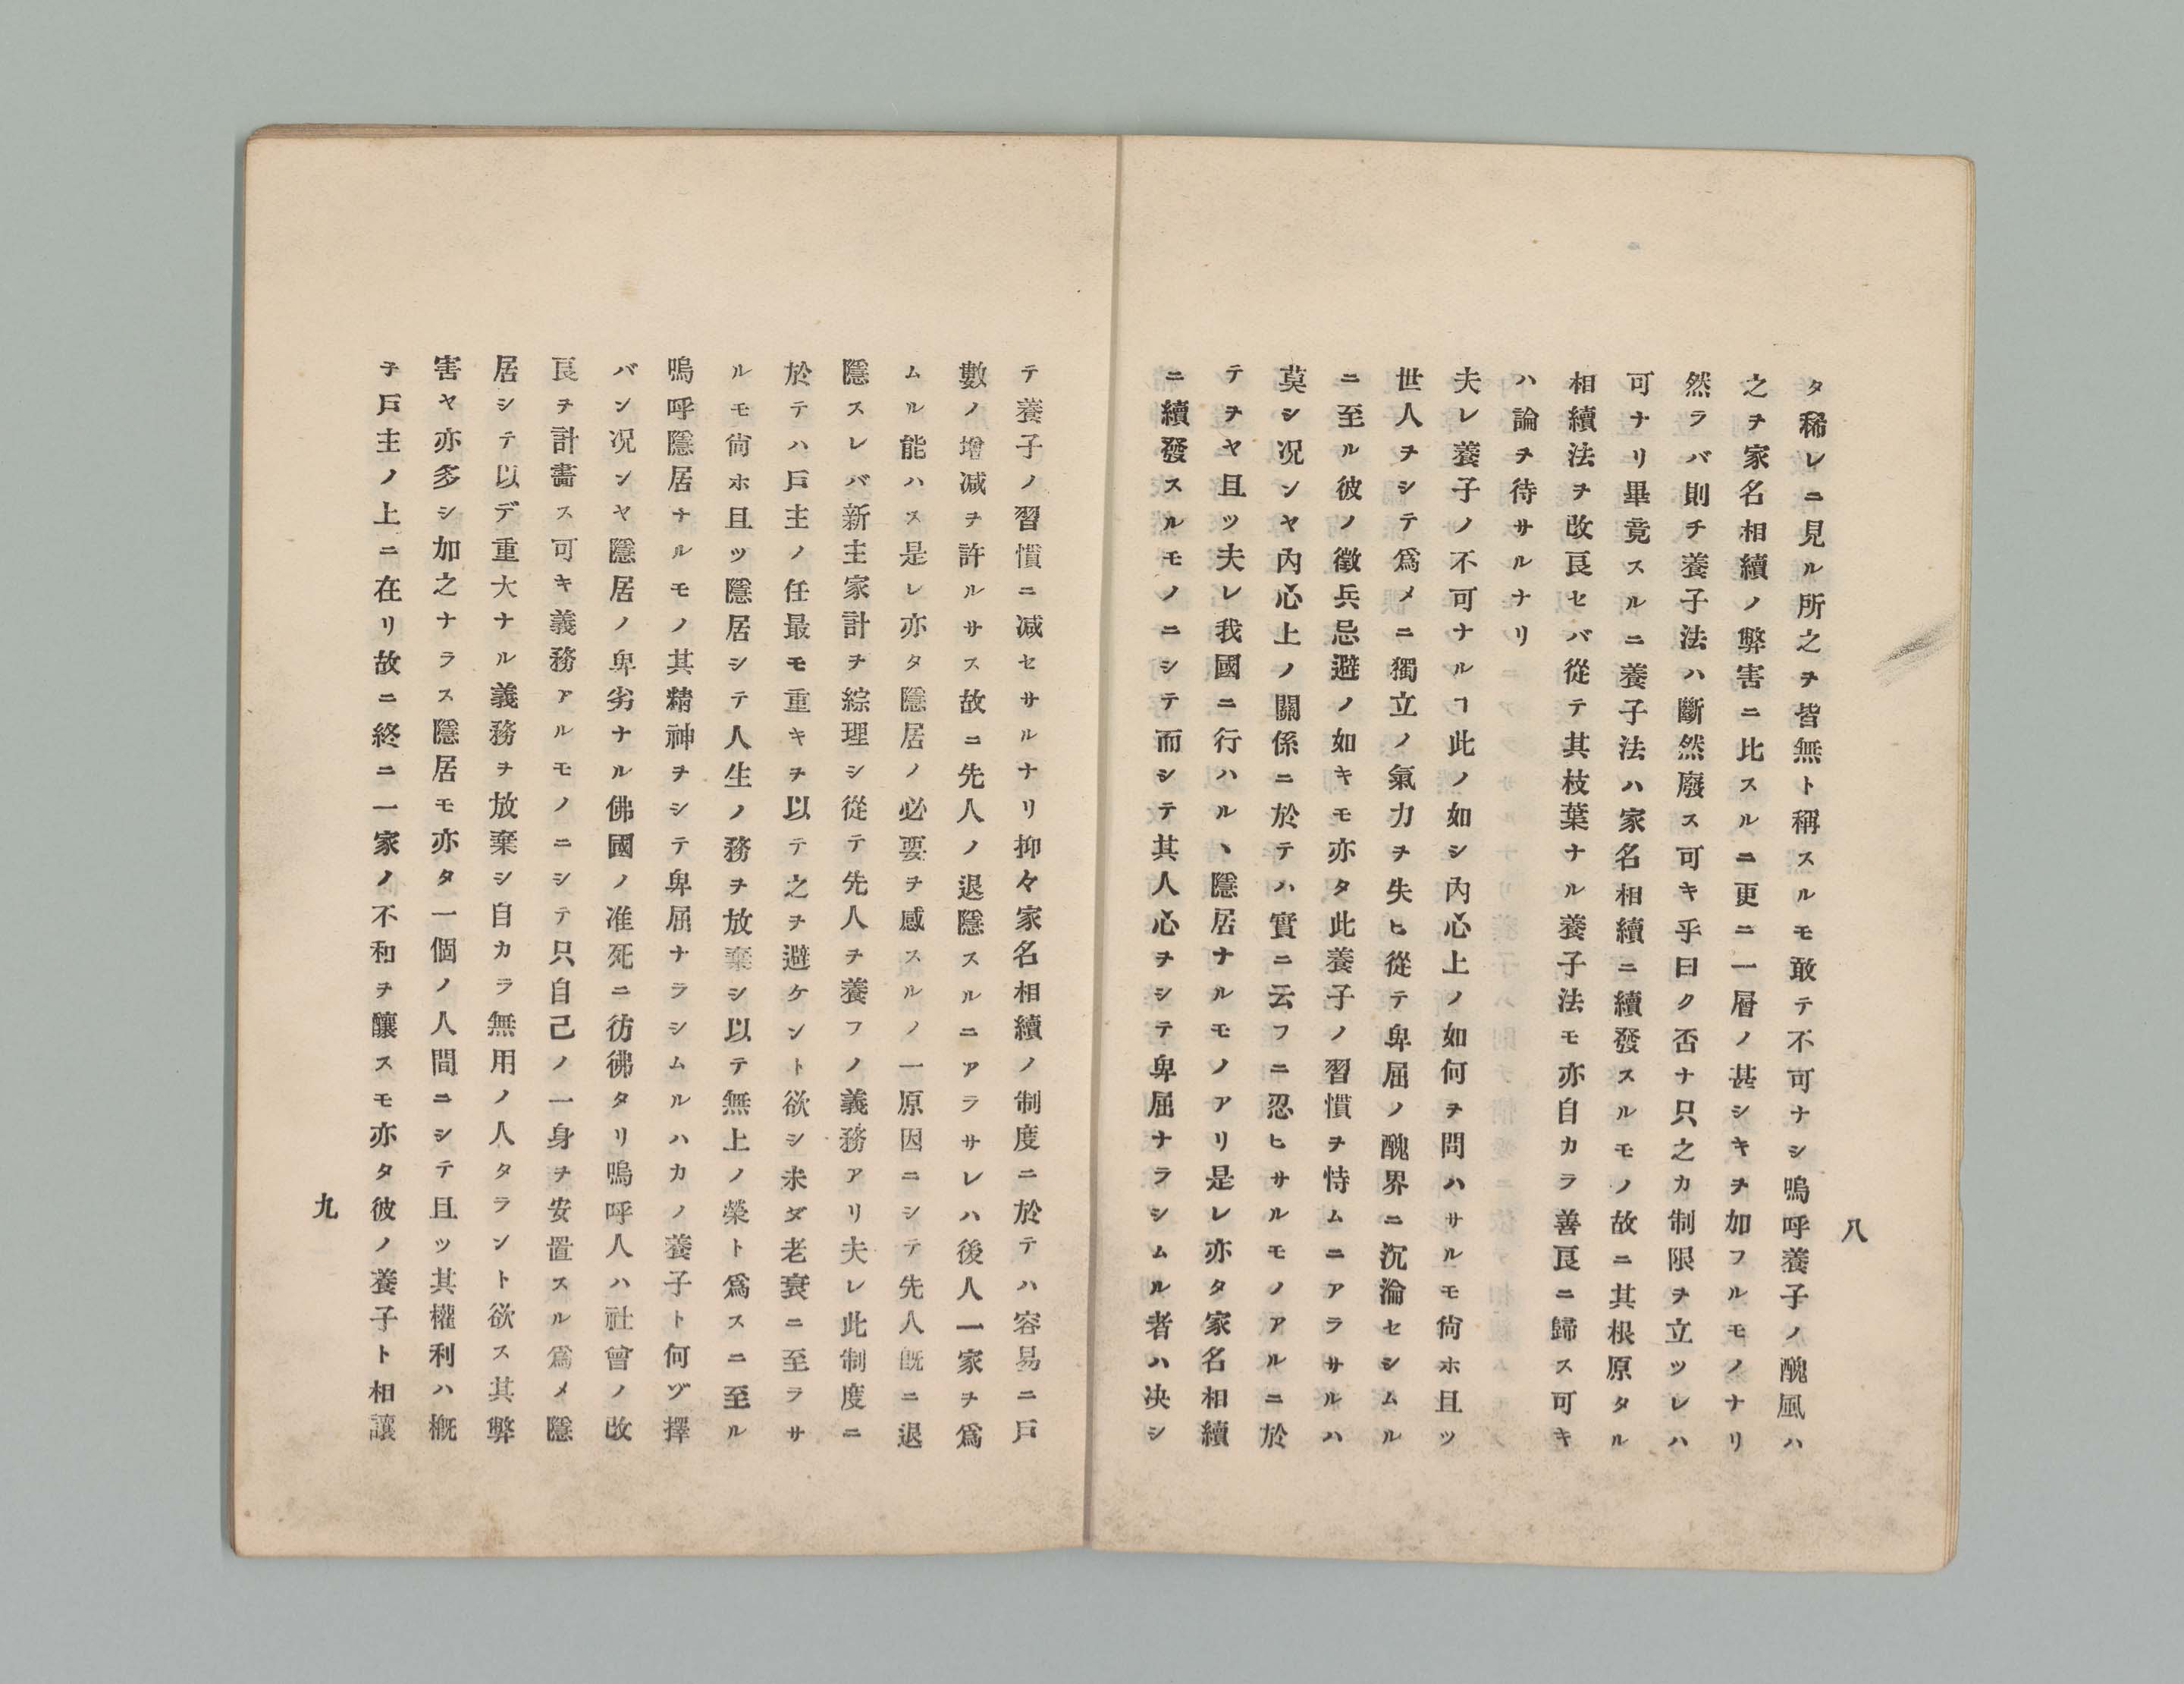 タ稀レニ見ル所之ヲ皆無ト稱スルモ敢テ不可ナシ嗚呼養子ノ醜風ハ
之ヲ家名相續ノ弊害ニ比スルニ更ニ一層ノ甚シキヲ加フルモノナリ
然ラバ則チ養子法ハ斷然廢ス可キ乎曰ク否ナ只之カ制限ヲ立ツレハ
可ナリ畢竟スルニ養子法ハ家名相續ニ續發スルモノ故ニ其根原タル
相續法ヲ改良セバ從テ其枝葉ナル養子法モ亦自カラ善良ニ歸ス可キ
ハ論ヲ待サルナリ
夫レ養子ノ不可ナルヿ此ノ如シ內心上ノ如何ヲ問ハサルモ尙ホ且ツ
世人ヲシテ爲メニ獨立ノ氣力ヲ失ヒ從テ卑屈ノ醜界ニ沉淪セシムル
ニ至ル彼ノ徵兵忌避ノ如キモ亦タ此養子ノ習慣ヲ恃ムニアラサルハ
莫シ况ンヤ內心上ノ關係ニ於テハ實ニ云フニ忍ヒサルモノアルニ於
テヲヤ且ツ夫レ我國ニ行ハルヽ隱居ナルモノアリ是レ亦タ家名相續
ニ續發スルモノニシテ而シテ其人心ヲシテ卑屈ナラシムル者ハ决シ
八
テ養子ノ習慣ニ减セサルナリ抑々家名相續ノ制度ニ於テハ容易ニ戶
數ノ增减ヲ許ルサス故ニ先人ノ退隱スルニアラサレハ後人一家ヲ爲
ムル能ハス是レ亦タ隱居ノ必要ヲ感スルノ一原因ニシテ先人旣ニ退
隱スレバ新主家計ヲ綜理シ從テ先人ヲ養フノ義務アリ夫レ此制度ニ
於テハ戶主ノ任最モ重キヲ以テ之ヲ避ケント欲シ未ダ老衰ニ至ラサ
ルモ尙ホ且ツ隱居シテ人生ノ務ヲ放棄シ以テ無上ノ榮ト爲スニ至ル
嗚呼隱居ナルモノ其精神ヲシテ卑屈ナラシムルハカノ養子ト何ゾ擇
バン况ンヤ隱居ノ卑劣ナル佛國ノ准死ニ彷彿タリ嗚呼人ハ社會ノ改
良ヲ計畵ス可キ義務アルモノニシテ只自己ノ一身ヲ安置スル爲メ隱
居シテ以デ重大ナル義務ヲ放棄シ自カラ無用ノ人タラント欲ス其弊
害ヤ亦多シ加之ナラス隱居モ亦タ一個ノ人間ニシテ且ツ其權利ハ槪
子戶主ノ上ニ在リ故ニ終ニ一家ノ不和ヲ釀スモ亦タ彼ノ養子ト相讓
九